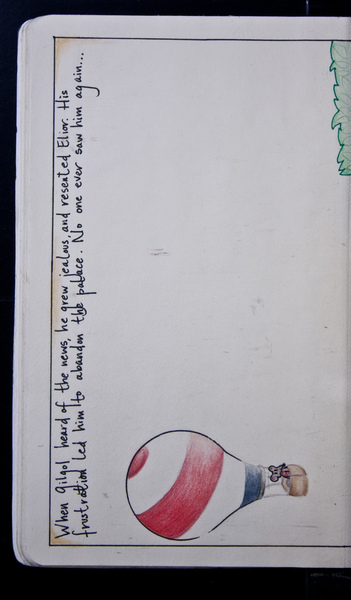 When Gilgol heard of the news, he grew jealous, and resented Elior. His
frustration led him to abandon the palace. No one ever saw him again...